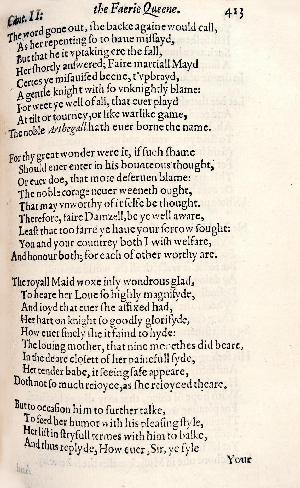 Cant. II:
the Faerie Queene.
413
The word gone out, she backe againe would call,
As her repenting so to haue missayd,
But that he it vptaking ere the fall,
Her shortly answered; Faire martiall Mayd
Certes ye misauised beene, t'vpbrayd,
A gentle knight with so vnknightly blame:
For weet ye well of all, that euer playd
At tilt or tourney, or like warlike game,
The noble Arthegall hath euer borne the name.
For thy great wonder were it, if such shame
Should euer enter in his bounteous thought,
Or euer doe, that mote deseruen blame:
The noble corage neuer weeneth ought,
That may vnworthy of it selfe be thought.
Therefore, faire Damzell, be ye well aware,
Least that too farre ye haue your sorrow sought:
You and your countrey both I wish welfare,
And honour both; for each of other worthy are.
The royall Maid woxe inly wondrous glad,
To heare her Loue so highly magnifyde,
And ioyd that euer she affixed had,
Her hart on knight so goodly glorifyde,
How euer finely she it faind to hyde:
The louing mother, that nine monethes did beare,
In the deare closett of her painefull syde,
Her tender babe, it seeing safe appeare,
Doth not so much reioyce, as she reioyced theare.
But to occasion him to further talke,
To feed her humor with his pleasing style,
Her list in stryfull termes with him to balke,
And thus replyde, How euer, Sir, ye fyle
Your